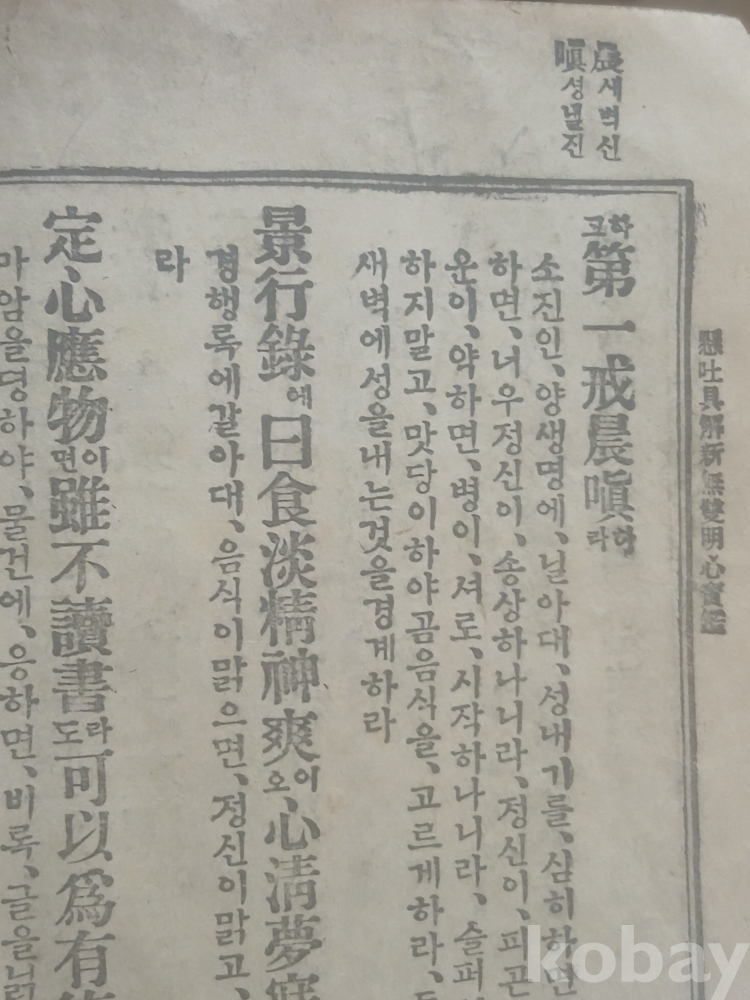 晨새벽신
嗔성낼진
懸吐具解新無雙明心寶鑑
하고第一戒晨嗔하라
소진인, 양생명에, 닐아대, 성내기를, 심히하면
하면, 너우정신이, 송상하나니라, 정신이, 피곤
운이, 약하면, 병이, 셔로, 시작하나니라, 슬퍼
하지말고, 맛당이하야곰음식을, 고르게하라,
새벽에성을내는것을경계하라
景行錄에曰食淡精神爽이오, 心淸夢
경행록에갈아대, 음식이맑으면, 정신이맑고,
라
定心應物이면雖不讀書라도可以爲有
마암을뎡하야, 물건에, 응하면, 비록, 글을닑
kobay